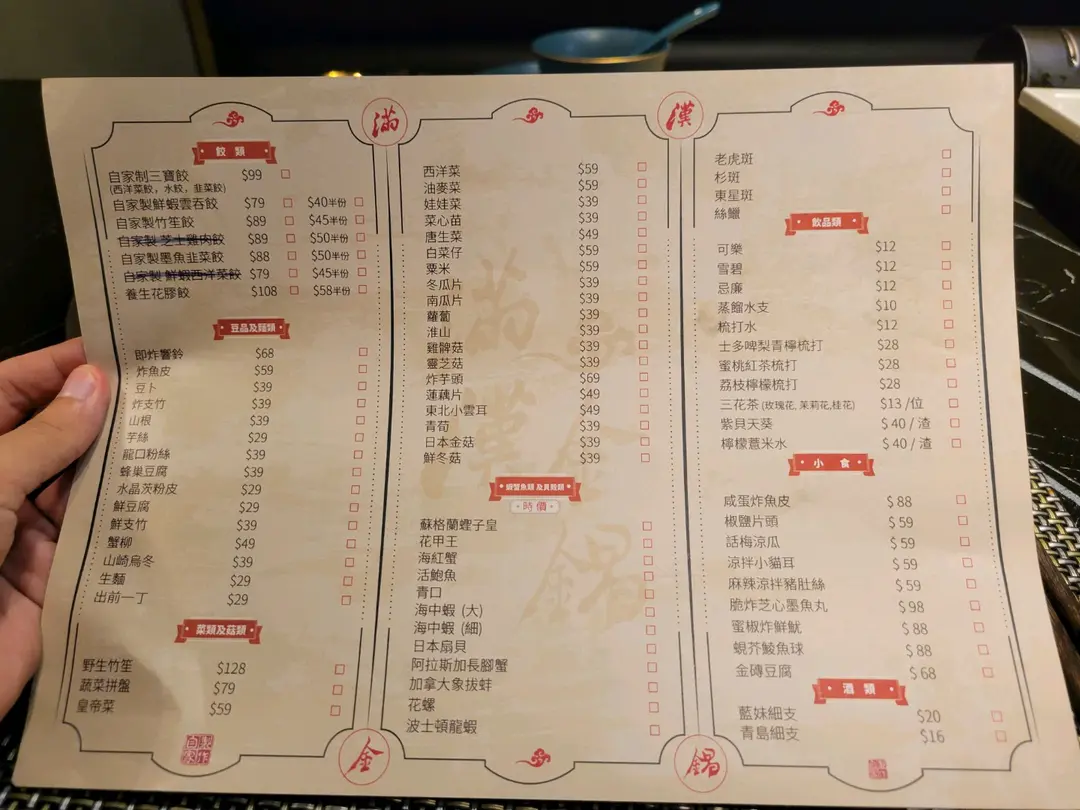 滿
漢
餃 類
自家制三寶餃 $99
(西洋菜餃,水餃,韭菜餃)
自家製鮮蝦雲吞餃 $79 $40半份
自家製竹笙餃 $89 $45半份
自家製 芝士雞肉餃 $89 $50半份
自家製墨魚韭菜餃 $88 $50半份
自家製 鮮蝦西洋菜餃 $79 $45半份
養生花膠餃 $108 $58半份
豆品及麵類
即炸響鈴 $68
炸魚皮 $59
豆卜 $39
炸支竹 $39
山根 $39
芋絲 $29
龍口粉絲 $39
蜂巢豆腐 $39
水晶茨粉皮 $29
鮮豆腐 $29
鮮支竹 $39
蟹柳 $49
山崎烏冬 $39
生麵 $29
出前一丁 $29
菜類及菇類
野生竹笙 $128
蔬菜拼盤 $79
皇帝菜 $59
西洋菜 $59
油麥菜 $59
娃娃菜 $39
菜心苗 $39
唐生菜 $49
白菜仔 $59
粟米 $59
冬瓜片 $39
南瓜片 $39
蘿蔔 $39
淮山 $39
雞髀菇 $39
靈芝菇 $39
炸芋頭 $69
蓮藕片 $49
東北小雲耳 $49
青荀 $39
日本金菇 $39
鮮冬菇 $39
蝦蟹魚類 及貝殼類
時價
蘇格蘭蟶子皇
花甲王
海紅蟹
活鮑魚
青口
海中蝦 (大)
海中蝦 (細)
日本扇貝
阿拉斯加長腳蟹
加拿大象拔蚌
花螺
波士頓龍蝦
老虎斑
杉斑
東星斑
絲鱲
飲品類
可樂 $12
雪碧 $12
忌廉 $12
蒸餾水支 $10
梳打水 $12
士多啤梨青檸梳打 $28
蜜桃紅茶梳打 $28
荔枝檸檬梳打 $28
三花茶 (玫瑰花, 茉莉花,桂花) $13 /位
紫貝天葵 $ 40 / 渣
檸檬薏米水 $ 40 / 渣
小 食
咸蛋炸魚皮 $ 88
椒鹽片頭 $ 59
話梅涼瓜 $ 59
涼拌小貓耳 $ 59
麻辣涼拌豬肚絲 $ 59
脆炸芝心墨魚丸 $ 98
蜜椒炸鮮魷 $ 88
蜆芥鯪魚球 $ 88
金磚豆腐 $ 68
酒 類
藍妹細支 $20
青島細支 $16
金
鍋
滿漢金鍋